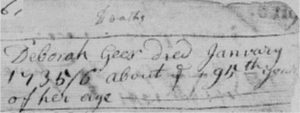 6,
Deaths
Deborah Gees died January
1735/6 about ye 95th year
of her age